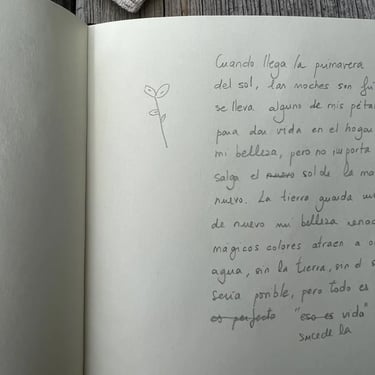 Cuando llega la primavera
del sol, las noches son
se lleva alguno de mis
para dar vida en el hogar
mi belleza, pero no importa
salga el nuevo sol de la
nuevo. La tierra guarda
de nuevo mi belleza
mágicos colores atraen a
agua, sin la tierra, sin
sería posible, pero todo es
es perfecto "eso es vida"
sucede la